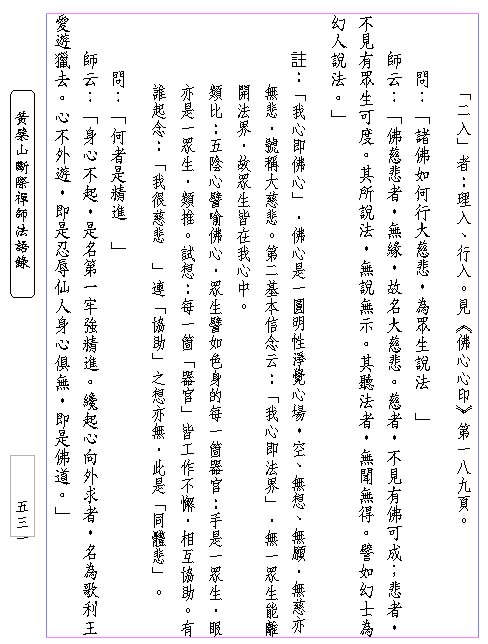 「二入」者：理入、行入。見《佛心心印》第一八九頁。
問：「諸佛如何行大慈悲，為眾生說法　」
師云：「佛慈悲者，無緣，故名大慈悲。慈者，不見有佛可成；悲者，
不見有眾生可度。其所說法，無說無示。其聽法者，無聞無得。譬如幻士為
幻人說法。」
註：「我心即佛心」，佛心是一圓明性淨覺心場，空、無想、無願，無慈亦
無悲，號稱大慈悲。第二基本信念云：「我心即法界」，無一眾生能離
開法界，故眾生皆在我心中。
類比：五陰心譬喻佛心，眾生譬如色身的每一箇器官；手是一眾生，眼
亦是一眾生，類推。試想：每一箇「器官」皆工作不懈，相互協助。有
誰起念：「我很慈悲　」連「協助」之想亦無，此是「同體悲」。
問：「何者是精進　」
師云：「身心不起，是名第一牢強精進。纔起心向外求者，名為歌利王
愛遊獵去。心不外遊，即是忍辱仙人身心俱無，即是佛道。」
黃檗山斷際禪師法語錄
五三一